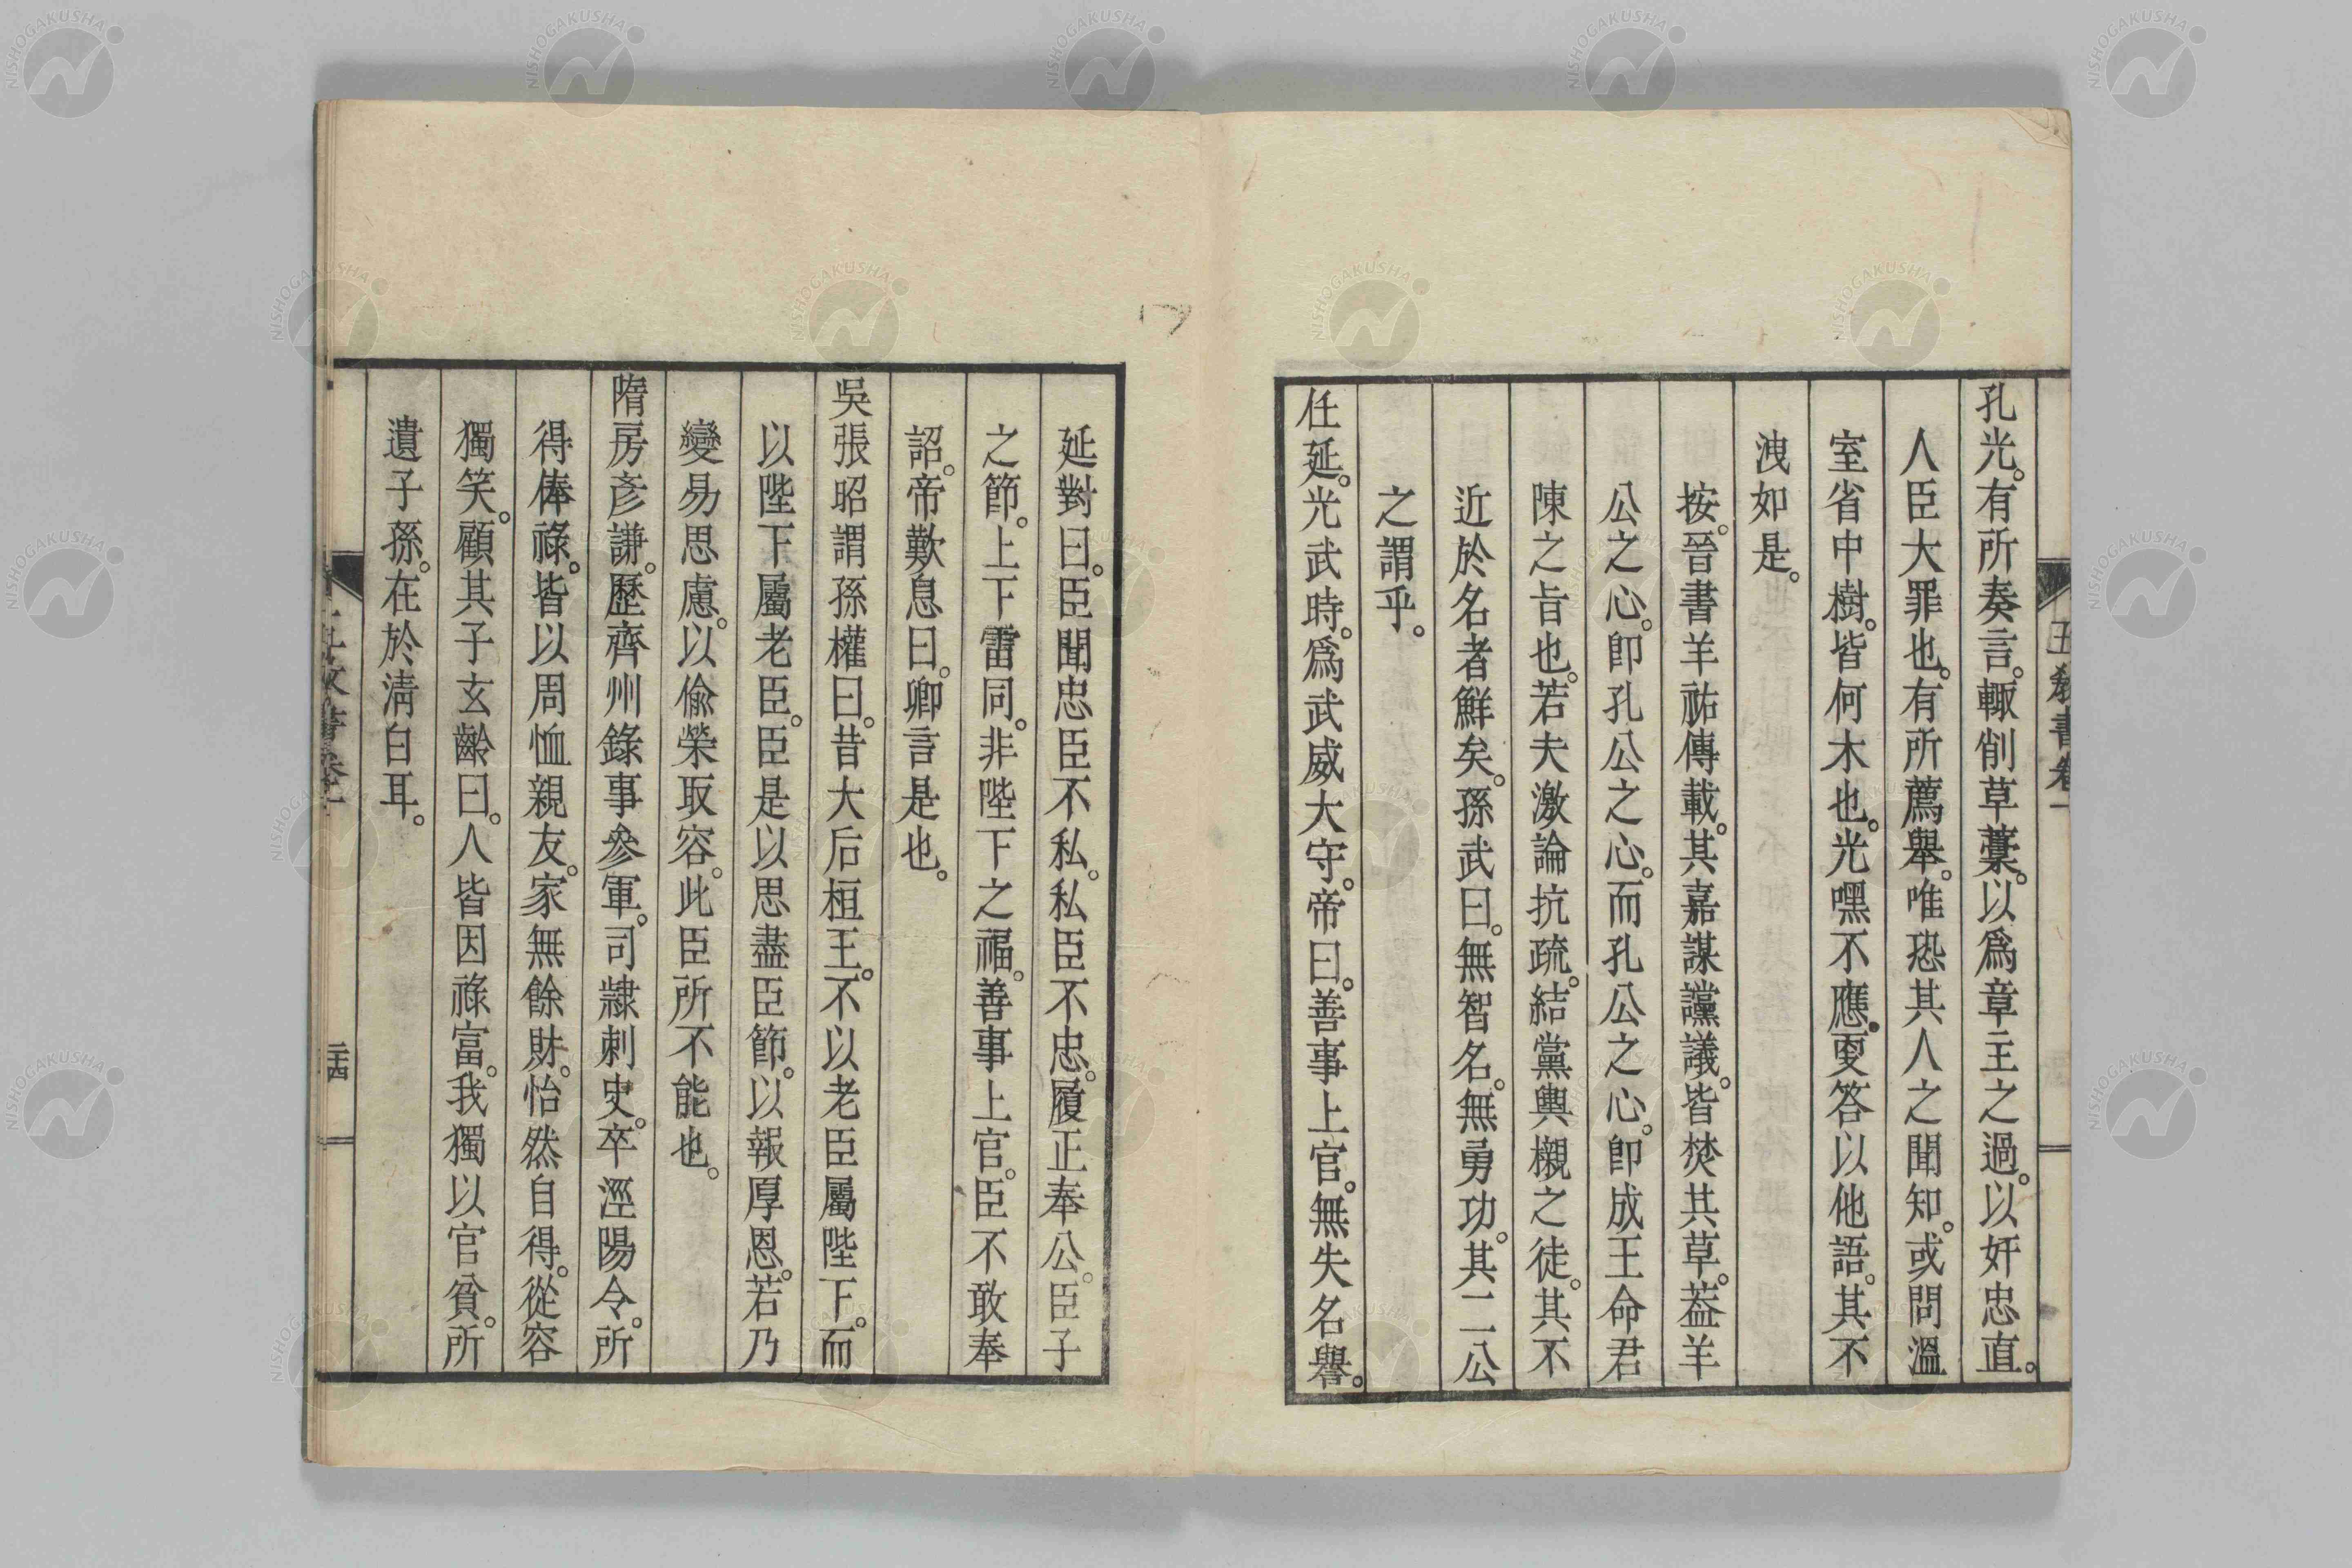 孔光。有所奏言。輙削草藁。以爲章主之過。以奸忠直。
人臣大罪也。有所薦舉。唯恐其人之聞知。或問溫
室省中樹。皆何木也。光嘿不應。更答以他語。其不
洩如是。
按。晉書羊祜傳載。其嘉謀讜議。皆焚其草。葢羊
公之心。卽孔公之心。而孔公之心。卽成王命君
陳之旨也。若夫激論抗疏。結黨輿櫬之徒。其不
近於名者鮮矣。孫武曰。無智名。無勇功。其二公
之謂乎。
任延。光武時。爲武威大守。帝曰。善事上官。無失名譽。
延對曰。臣聞忠臣不私。私臣不忠。履正奉公。臣子
之節。上下雷同。非陛下之福。善事上官。臣不敢奉
詔。帝歎息曰。卿言是也。
吳張昭謂孫權曰。昔大后桓王。不以老臣屬陛下。而
以陛下屬老臣。臣是以思盡臣節。以報厚恩。若乃
變易思慮。以偸榮取容。此臣所不能也。
隋房彥謙。歷齊州錄事參軍。司隷刺史。卒涇陽令。所
得俸祿。皆以周恤親友。家無餘財。怡然自得。從容
獨笑。顧其子玄齡曰。人皆因祿富。我獨以官貧。所
遺子孫。在於淸白耳。
NISHOGAKUSHA